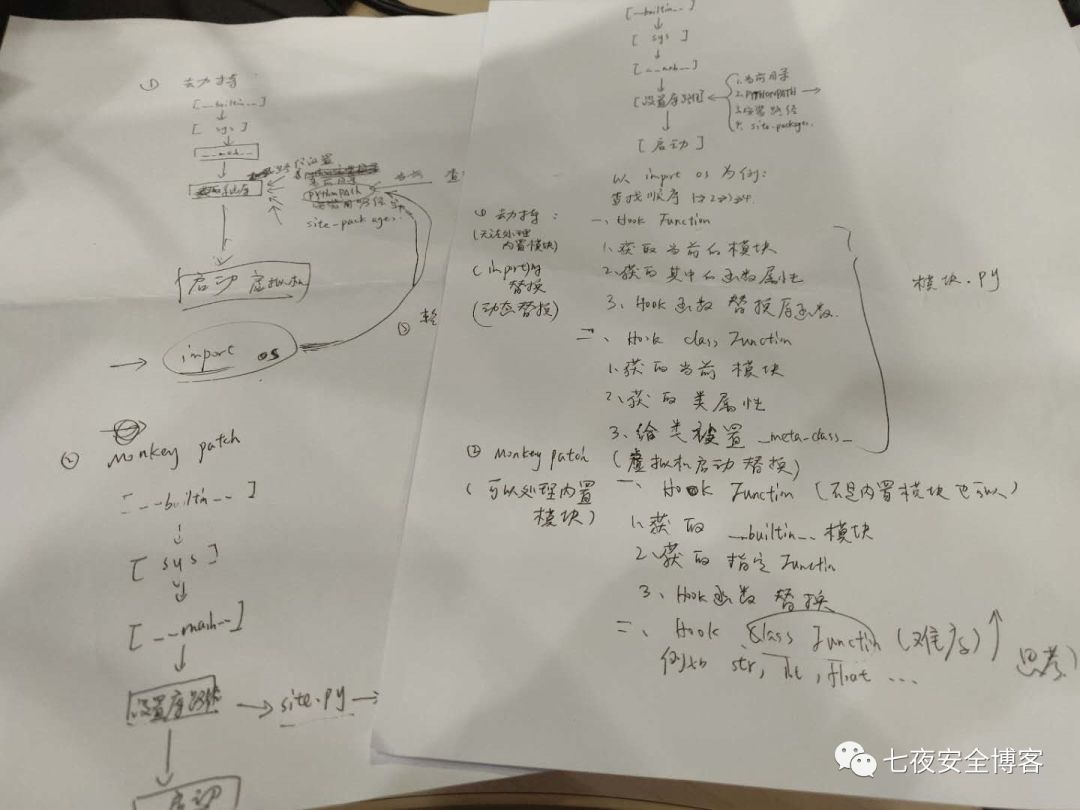 ① 去力持
[__builtin__]
[ sys ]
[__main__]
PYTHONPATH
site-packages.
启动 虚拟机
import os
② monkey patch
[__builtin__]
[ sys ]
[__main__]
设置库路径
site.py
启动
[__builtin__]
[ sys ]
[__main__]
[设置库路径]
1.当前目录
2.PYTHONPATH
3.安装路径
4. site-packages.
[启动]
以 import os 为例:
查找顺序 1→2→3→4.
(无法处理
内置模块)
(import时
替换)
(动态替换)
一、Hook Function
1.获取当前的模块
2.获取其中的函数属性
3、Hook函数 替换原函数.
二、Hook class Function
1.获取当前 模块
2.获取 类属性
3、给类设置 _meta-class_
模块.py
② monkey patch
(可以处理内置
模块)
(虚拟机启动替换)
一、Hook Function (不是内置模块也可以)
1.获取 __builtin__ 模块
2.获取 指定 Function
3、Hook函数 替换
二、Hook class Function (难度) ↑ 思考)
例如 str, int, float ...
七夜安全博客